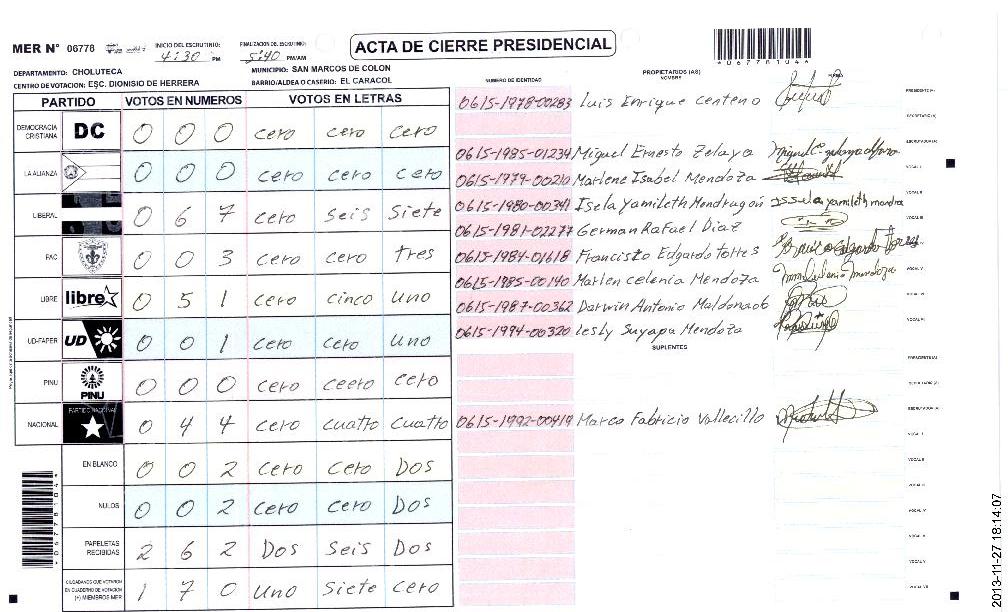 MER N° 06778 INICIO DEL ESCRUTINIO: 4:30 PM FINALIZACION DEL ESCRUTINIO: 5:40 PM/AM
ACTA DE CIERRE PRESIDENCIAL
DEPARTAMENTO: CHOLUTECA MUNICIPIO: SAN MARCOS DE COLON
CENTRO DE VOTACION: ESC. DIONISIO DE HERRERA BARRIO/ALDEA O CASERIO: EL CARACOL
NUMERO DE IDENTIDAD PROPIETARIOS (AS) NOMBRE FIRMA
PARTIDO VOTOS EN NUMEROS VOTOS EN LETRAS
DEMOCRACIA CRISTIANA DC 0 0 0 cero cero cero
LA ALIANZA 0 0 0 cero cero cero
LIBERAL 0 6 7 cero seis siete
PAC 0 0 3 cero cero tres
LIBRE libre 0 5 1 cero cinco uno
UD-FAPER UD 0 0 1 cero cero uno
PINU PINU 0 0 0 cero ceero cero
NACIONAL PARTIDO NACIONAL 0 4 4 cero cuatro cuatro
EN BLANCO 0 0 2 cero cero Dos
NULOS 0 0 2 cero cero Dos
PAPELETAS RECIBIDAS 2 6 2 Dos seis Dos
CIUDADANOS QUE VOTARON EN CUADERNO DE VOTACION (+) MIEMBROS MER 1 7 0 uno siete cero
0615-1978-00283 Luis Enrique Centeno
0615-1985-01234 Miguel Ernesto Zelaya
0615-1979-00210 Marlene Isabel Mendoza
0615-1980-00341 Isela Yamileth Mendragon
0615-1981-02277 German Rafael Diaz
0615-1984-01618 Francisto Edgardo Torres
0615-1985-00140 Marlen Celenia Mendoza
0615-1987-00362 Darwin Antonio Maldonado
0615-1994-00320 Lesly Suyapa Mendoza
SUPLENTES
0615-1992-00419 Marco Fabricio Vallecillo
2013-11-27 18:14:07